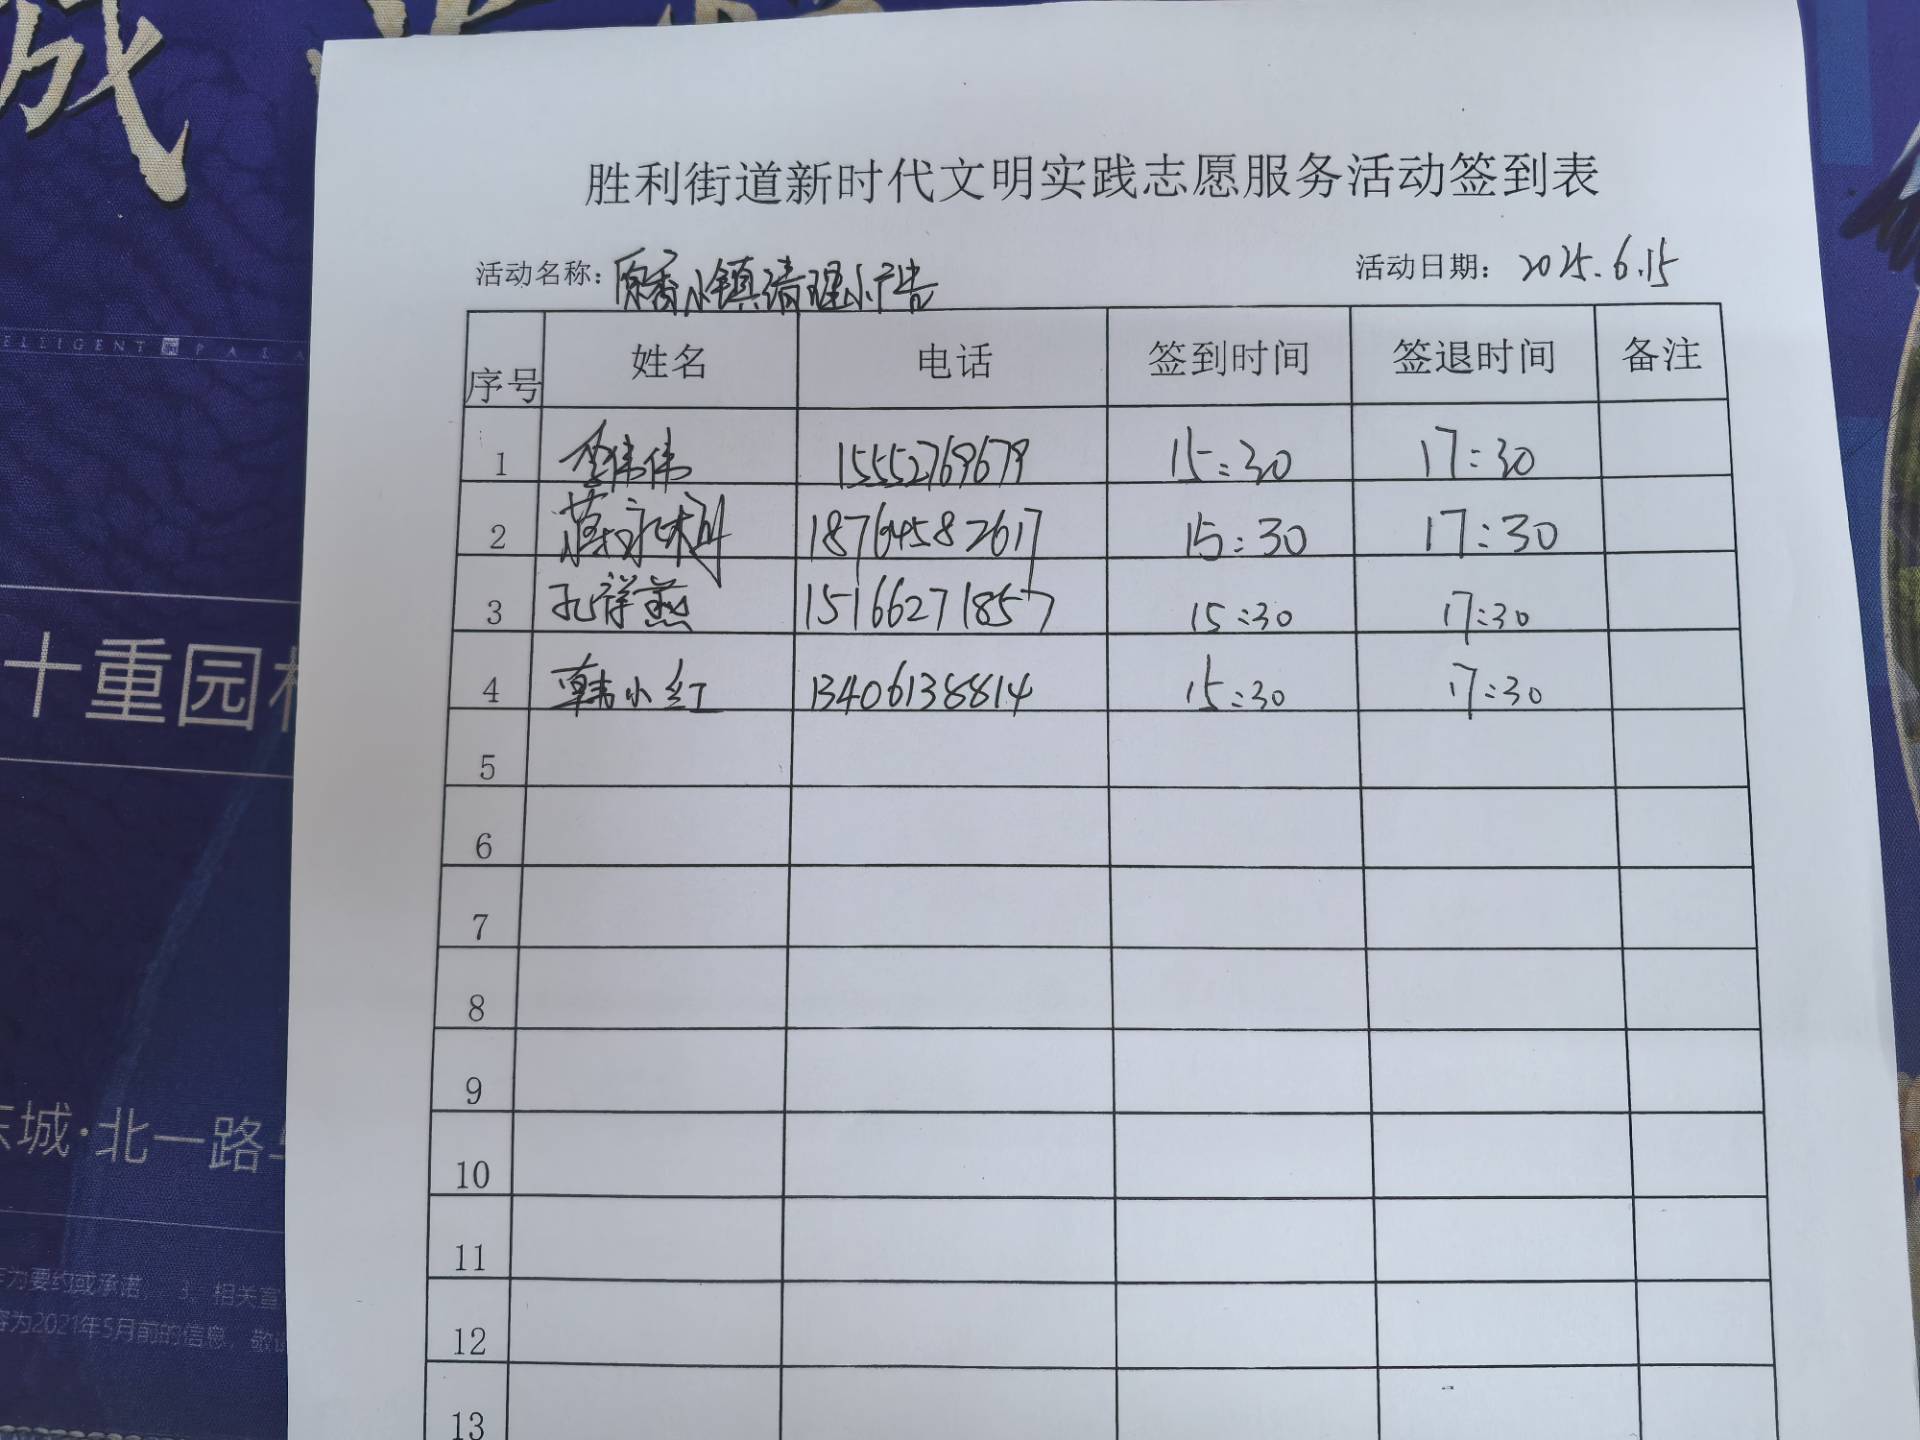 城
胜利街道新时代文明实践志愿服务活动签到表
活动名称：原香小镇清理小广告 活动日期：2025.6.15
ELLIGENT PALA
序号 姓名 电话 签到时间 签退时间 备注
1 李伟伟 15552769679 15:30 17:30
2 蒋永彬 18764582617 15:30 17:30
3 孔祥燕 15166271857 15:30 17:30
4 韩小红 13406138814 15:30 17:30
5
6
7
8
9
10
11
12
13
十重园
东城·北一路
作为要约或承诺， 3、相关宣
容为2021年5月前的信息，敬